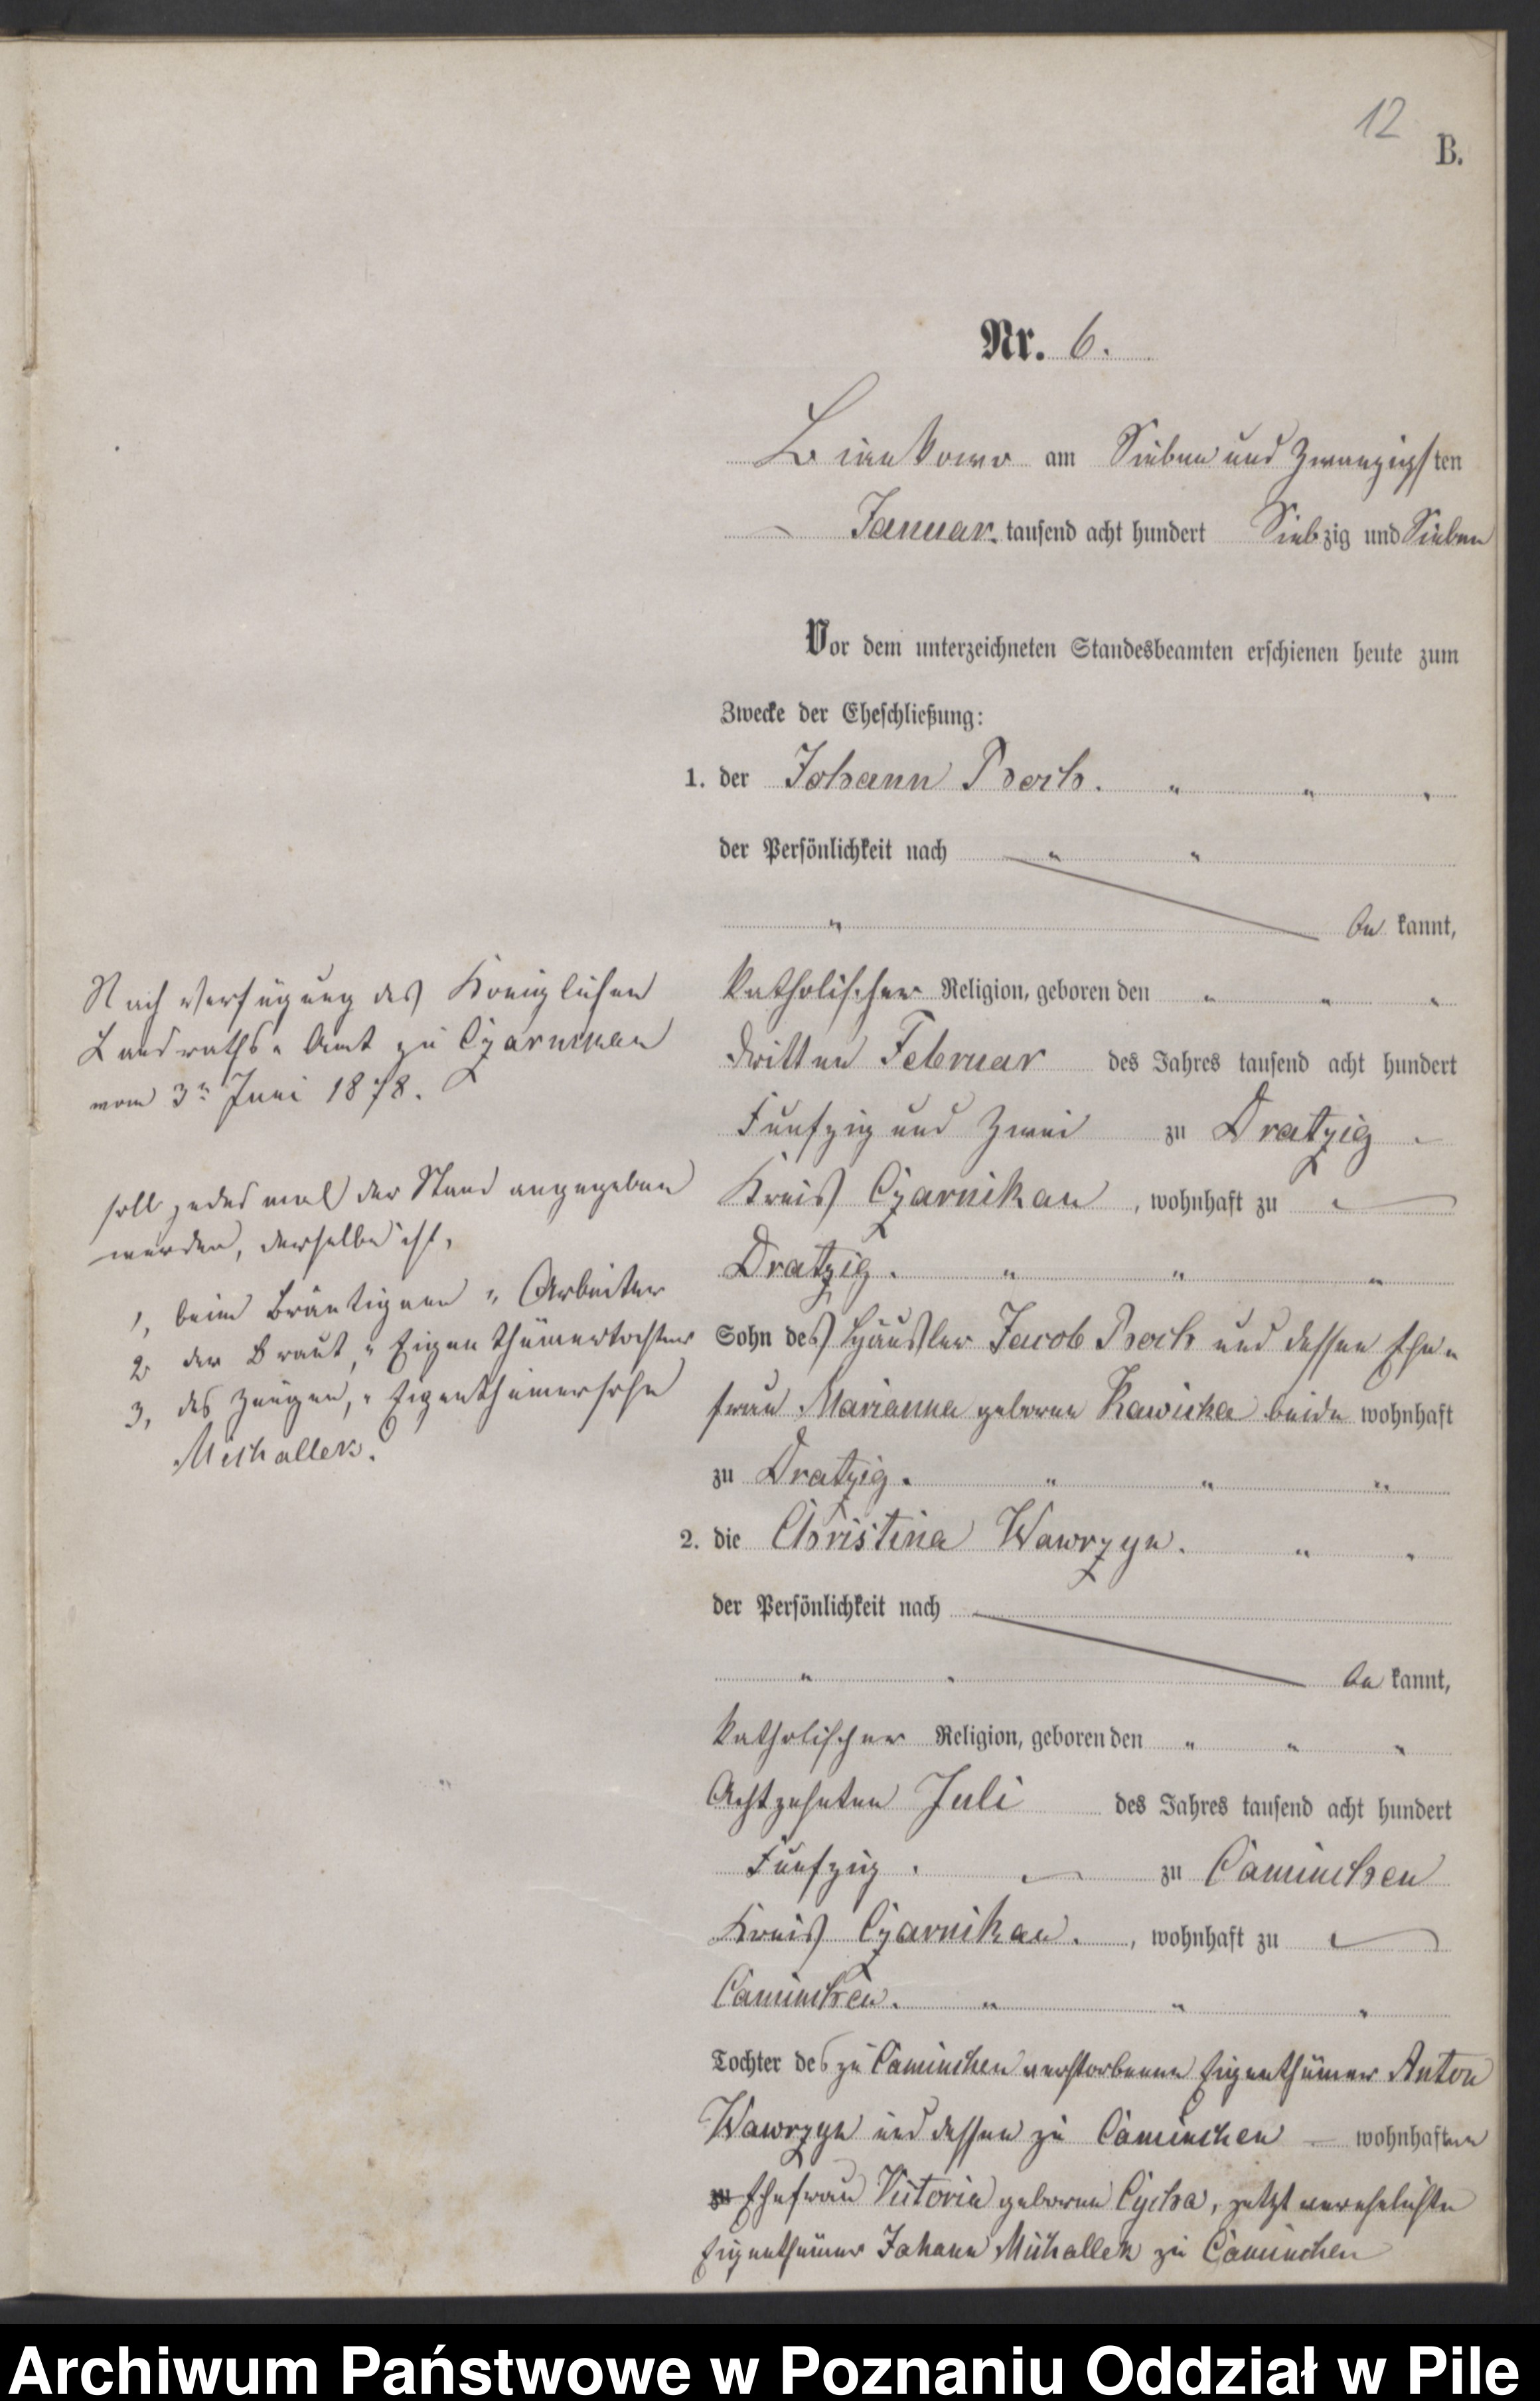 12
B.
Nr. 6.
am Sieben und Zwanzigsten
Januar tausend acht hundert Siebzig und Sieben
Vor dem unterzeichneten Standesbeamten erschienen heute zum
Zwecke der Eheschließung:
1. der Johann . " " "
der Persönlichkeit nach " "
" be kannt,
katholischer Religion, geboren den " " "
dritten Februar des Jahres tausend acht hundert
Funfzig und Zwei zu Dratzig
Kreis Czarnikau, wohnhaft zu
Dratzig. " " "
Sohn des Häusler Jacob und dessen Ehe-
frau Marianna geborne beide wohnhaft
zu Dratzig. " " "
2. die Christina Wawrzyn. " "
der Persönlichkeit nach
" " be kannt,
katholischer Religion, geboren den " " "
Achtzehnten Juli des Jahres tausend acht hundert
Funfzig. zu Caminchen
Kreis Czarnikau., wohnhaft zu
Caminchen. " " "
Tochter des zu Caminchen verstorbenen Eigenthümer Anton
Wawrzyn und dessen zu Caminchen — wohnhaften
zu Ehefrau Victoria geborne Cycha, jetzt verehelichte
Eigenthümer Johann Michallek zu Caminchen
Nach Verfügung des Königlichen
Landraths-Amt zu Czarnikau
vom 3n Juni 1878.
soll jedes mal der Stand angegeben
werden, derselbe ist,
1, beim Bräutigam " Arbeiter
2. der Braut, " Eigenthümertochter
3, des Zeugen, " Eigenthümersohn
Michallek.
Archiwum Państwowe w Poznaniu Oddział w Pile